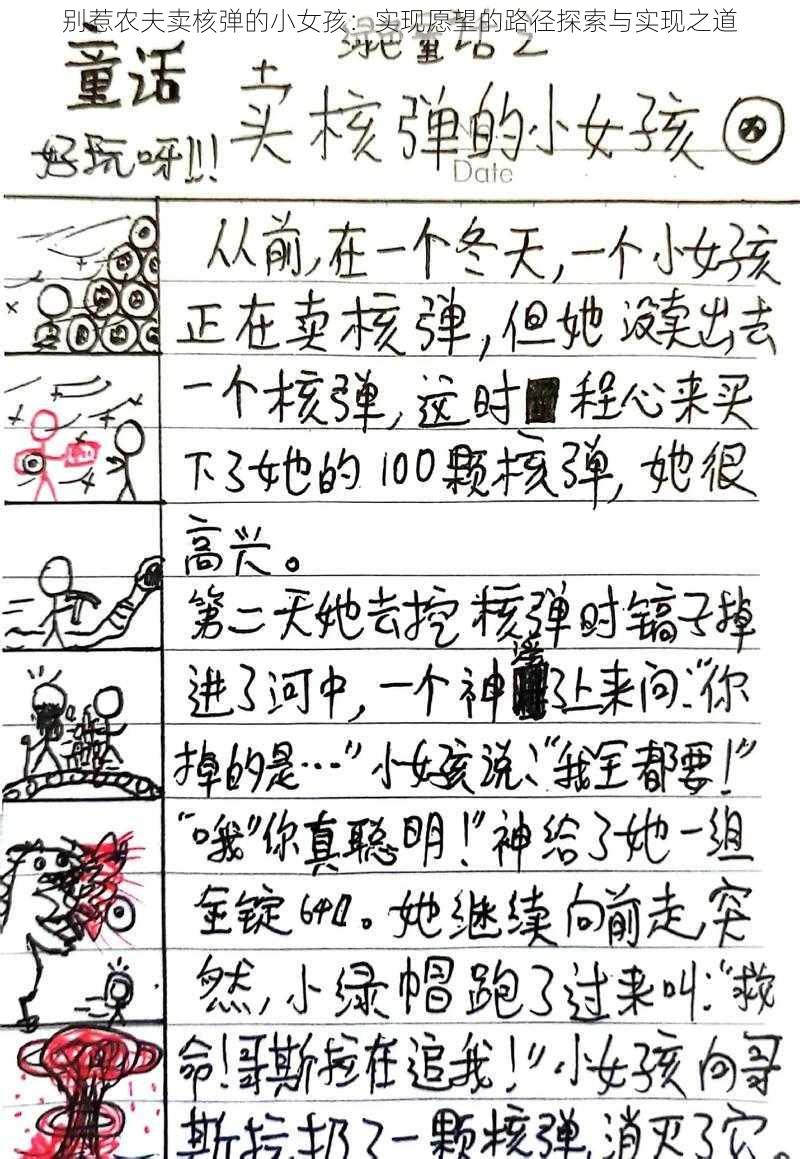 别惹农夫卖核弹的小女孩：实现愿望的路径探索与实现之道
绿色童话之
童话
卖核弹的小女孩
好玩呀!!!
Date
从前,在一个冬天,一个小女孩
正在卖核弹,但她没卖出去
一个核弹,这时程心来买
下了她的100颗核弹,她很
高兴。
第二天她去挖核弹时镐子掉
进了河中,一个神浮了上来问:“你
掉的是…”小女孩说:“我全都要!”
“哦”你真聪明!”神给了她一组
金锭64个。她继续向前走突
然,小绿帽跑了过来叫:“救
命!哥斯拉在追我!”小女孩向哥
斯拉扔了一颗核弹,消灭了它。